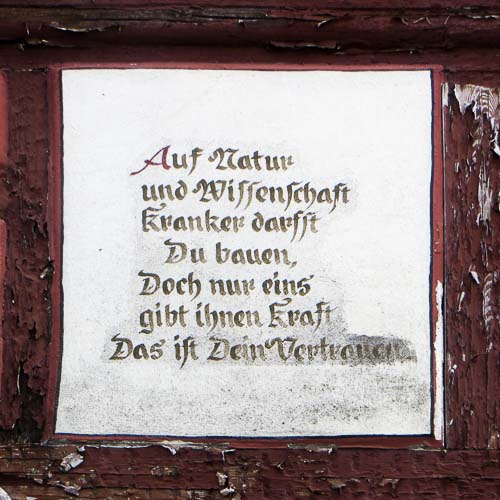 Auf Natur
und Wissenschaft
Kranker darfst
Du bauen,
Doch nur eins
gibt ihnen Kraft
Das ist Dein Vertrauen.